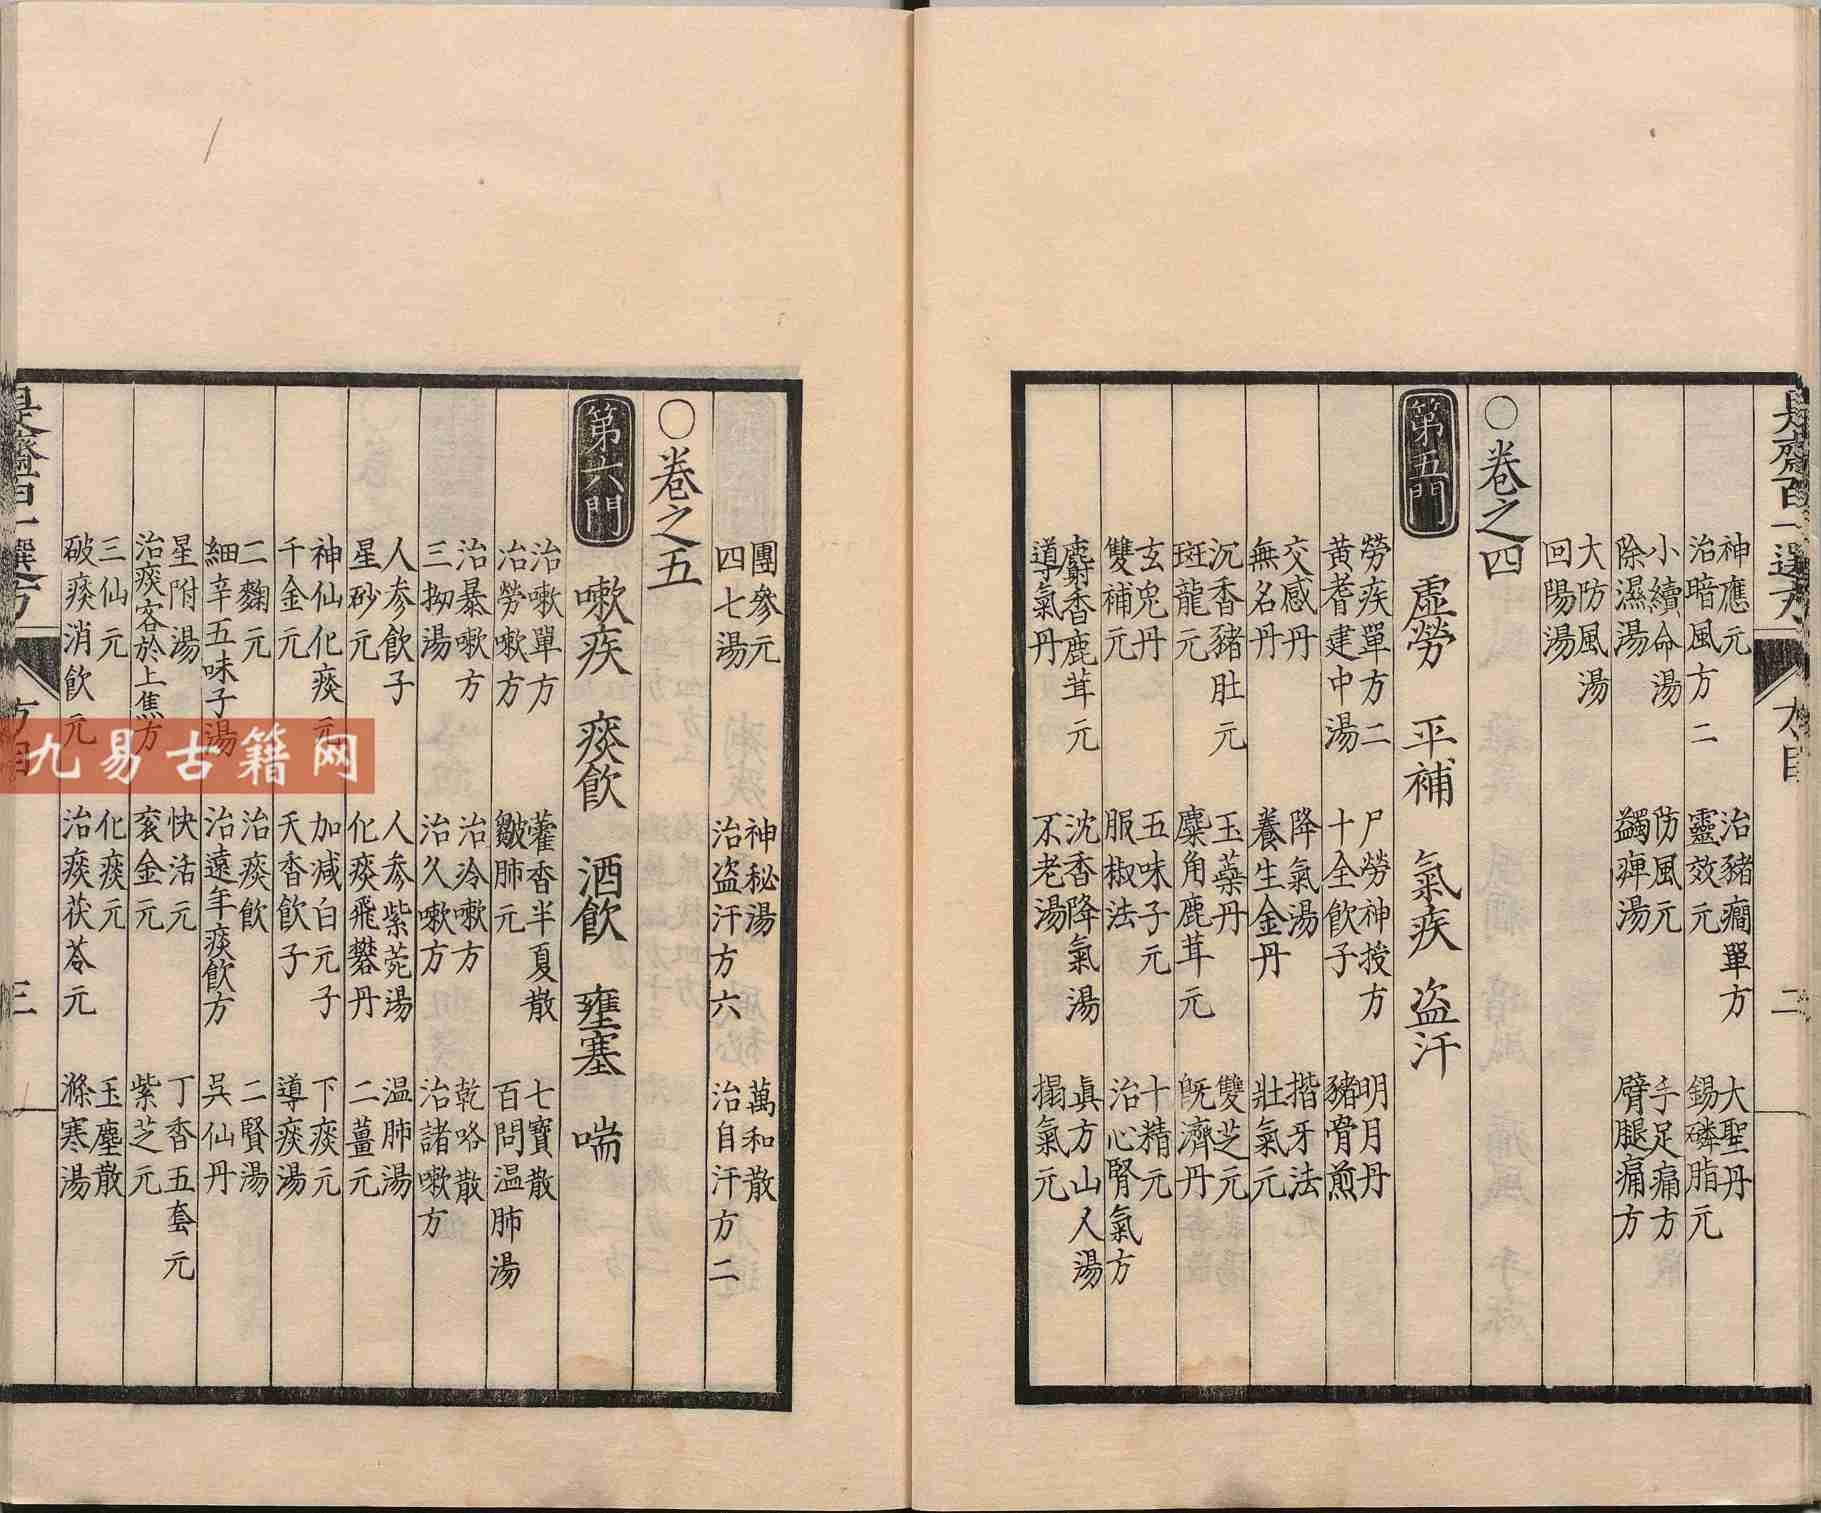 是齋百一選方 方目 二
神應元 治豬癎單方 大聖丹
治暗風方二 靈效元 錫磷脂元
小續命湯 防風元 手足痛方
除濕湯 蠲痺湯 臂腿痛方
大防風湯
回陽湯
○卷之四
第五門 虛勞 平補 氣疾 盜汗
勞疾單方二 尸勞神授方 明月丹
黃耆建中湯 十全飲子 豬骨煎
交感丹 降氣湯 揩牙法
無名丹 養生金丹 壯氣元
沉香豬肚元 玉藥丹 雙芝元
斑龍元 麋角鹿茸元 既濟丹
玄兔丹 五味子元 十精元
雙補元 服椒法 治心腎氣方
麝香鹿茸元 沈香降氣湯 眞方山人湯
導氣丹 不老湯 搨氣元
團參元 神秘湯 萬和散
四七湯 治盜汗方六 治自汗方二
○卷之五
第六門 嗽疾 痰飮 酒飮 壅塞 喘
治嗽單方 藿香半夏散 七寶散
治勞嗽方 皺肺元 百問温肺湯
治暴嗽方 治冷嗽方 乾咯散
三拗湯 治久嗽方 治諸嗽方
人参飲子 人参紫菀湯 温肺湯
星砂元 化痰飛礬丹 二薑元
神仙化痰元 加减白元子 下痰元
千金元 天香飲子 導痰湯
二麴元 治痰飲 二賢湯
細辛五味子湯 治遠年痰飲方 吳仙丹
星附湯 快活元 丁香五套元
治痰客於上焦方 衮金元 紫芝元
三仙元 化痰元 玉塵散
破痰消飲元 治痰茯苓元 滌寒湯
是齋百一選方 方目 三
九易古籍网